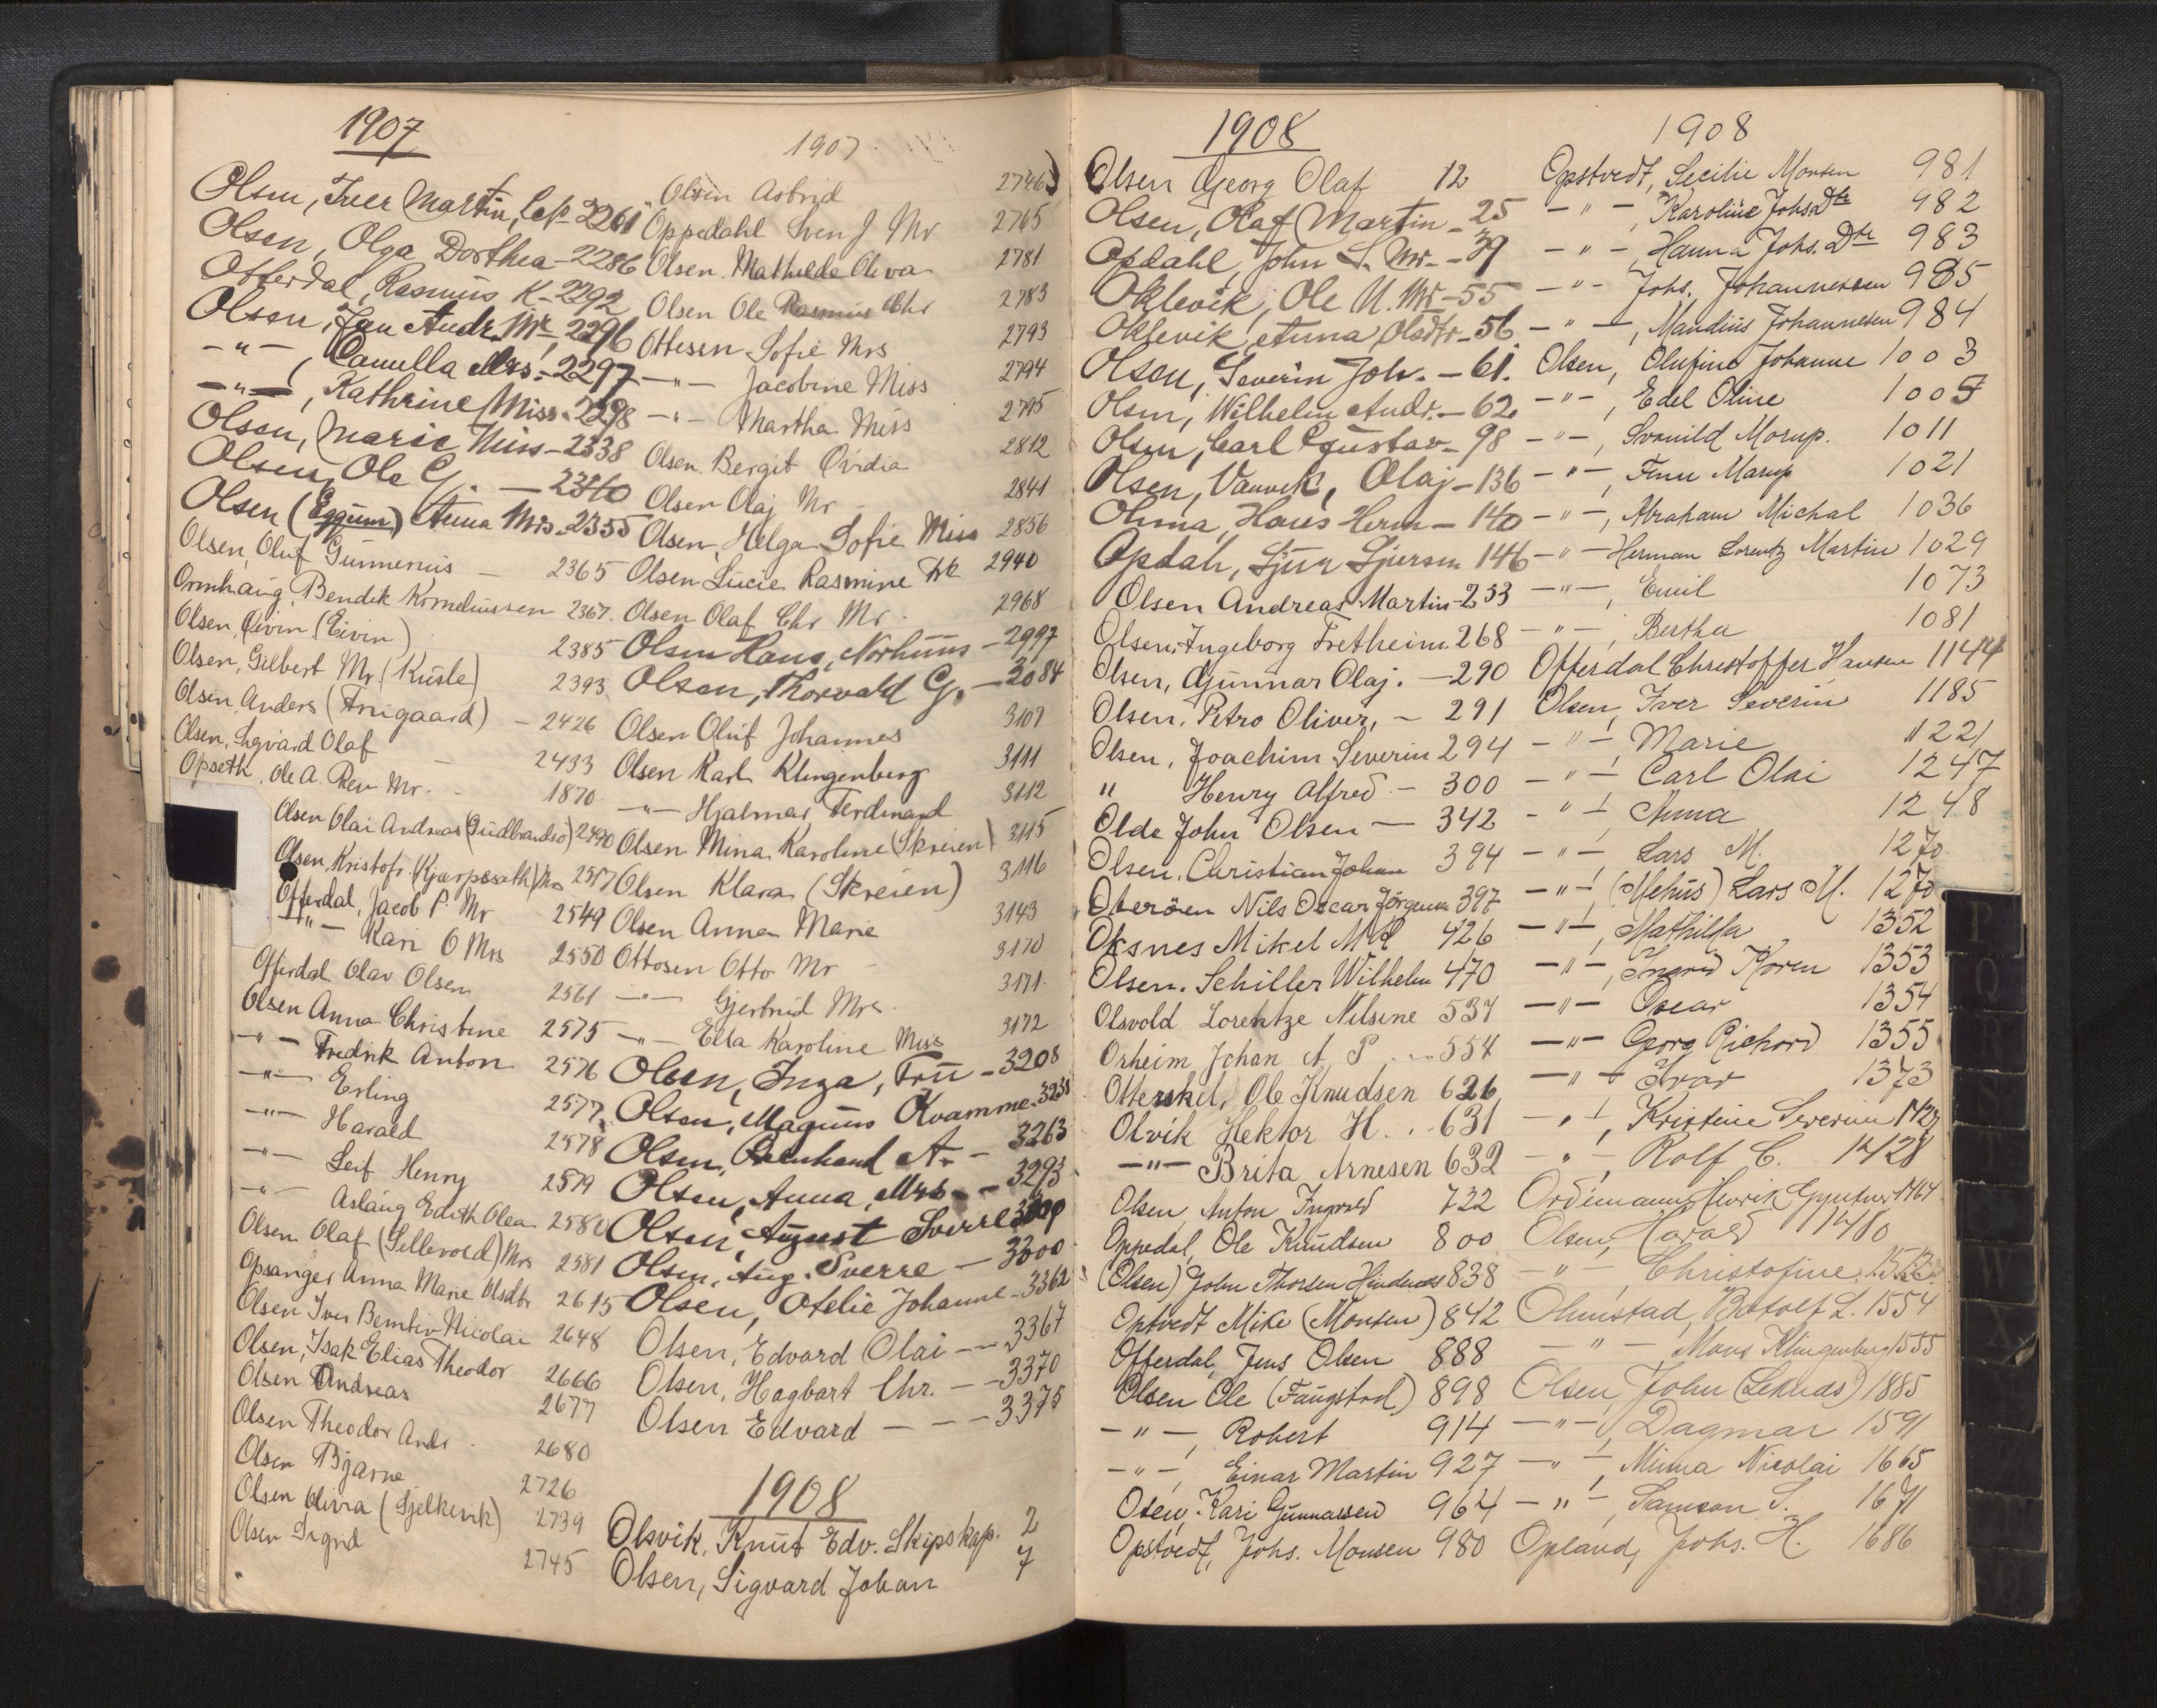 1907
Olsen, Iver Martin, Cap. 2261
Olsen, Olga Dorthea - 2286
Offerdal, Rasmus K - 2292
Olsen, Jan Andr. Mr. 2296
- " - , Camilla Mrs. - 2297
- " - , Kathrine Miss - 2298
Olsen, Marie Miss - 2338
Olsen, Ole G. - 2340
Olsen (Eggum) Anna Mrs. 2355
Olsen, Oluf Gunnerius - 2365
Ormhaug, Bendik Korneliussen 2367.
Olsen, Eivin (Eivin) 2385
Olsen, Gilbert Mr (Kusle) 2393
Olsen, Anders (Fruigaard) - 2426
Olsen, Sigvard Olaf - 2433
Opseth, Ole A. Rev Mr. - 1870
Olsen Olai Andreas (Gudbrandsø) 2490
Olsen, Kristofr. (Kjærpeseth) Mrs 2517
Offerdal, Jacob P. Mr 2549
- " - Kari O Mrs 2550
Offerdal Olav Olsen 2561
Olsen Anna Christine 2575
- " - Fredrik Anton 2576
- " - Erling 2577
- " - Harald 2578
- " - Leif Henry 2579
- " - Aslaug Edith Olea 2580
Olsen Olaf (Sellevold) Mrs 2581
Opsanger Anna Marie Olsdtr 2615
Olsen Iver Berntin Nicolai 2648
Olsen, Isak Elias Theodor 2666
Olsen Andreas 2677
Olsen Theodor Andr. 2680
Olsen Bjarne 2726
Olsen Olivia (Sjelkevik) 2739
Olsen Sigrid 2745
1907
Olsen Astrid 2746
Oppedahl Sven J Mr 2765
Olsen Mathilde Oliva 2781
Olsen Ole Rasmus Chr 2783
Ottesen Sofie Mrs 2793
- " - Jacobine Miss 2794
- " - Martha Miss 2795
Olsen, Bergit Ovidia 2812
Olsen Olaj Mr 2841
Olsen, Helga Sofie Miss 2856
Olsen Lucie Rasmine Frk 2940
Olsen Olaf Chr Mr. 2968
Olsen Hans, Norhuus - 2997
Olsen, Thorvald G. - 3084
Olsen Oluf Johannes 3107
Olsen Karl Klingenberg 3111
- " - Hjalmar Ferdinand 3112
Olsen Mina Karoline (Skreien) 3115
Olsen Klara (Skreien) 3116
Olsen Anna Marie 3143
Ottosen Otto Mr 3170
- " - Gjertrud Mrs. 3171
- " - Ella Karoline Miss 3172
Olsen, Inga, Frü - 3208
Olsen, Magnus Kvamme. 3238
Olsen, Bernhard A. - 3263
Olsen, Anna, Mrs - 3293
Olsen, August Sverre 3300
Olsen, Aug. Sverre - 3300
Olsen, Otelie Johanne - 3362
Olsen, Edvard Olai - - 3367
Olsen, Hagbart Chr. - - 3370
Olsen Edvard - - - 3375
1908
Olsvik, Knut Edv. Skipskap. 2
Olsen, Sigvard Johan 7
1908
Olsen Georg Olaf 12
Olsen, Olaf Martin - 25
Opdahl, John S. Mr. - 39
Oklevik, Ole U. Mr - 55
Oklevik, Anna Olsdtr - 56
Olsen, Severin Joh. - 61.
Olsen, Wilhelm Andr. - 62.
Olsen, Carl Gustav - 98
Olsen, Vanvik, Olaj - 136
Ohma, Hans Herm - 140
Opdah, Sjur Sjursen 146
Olsen Andreas Martin - 253
Olsen, Ingeborg Fretheim. 268
Olsen, Gunnar Olaj. - 290
Olsen, Petro Oliver, - 291
Olsen, Joachim Severin 294
" Henry Alfred - 300
Olde John Olsen - 342
Olsen, Christian Johan 394
Oterøen Nils Oscar Jørgensen 397
Oksnes Mikel M L 426
Olsen, Schiller Wilhelm 470
Olsvold Lorentze Nilsine 537
Orheim Johan A. P. 554
Otterskel, Ole Knudsen 626
Olvik Hektor H. . . 631
- " - Brita Arnesen 632
Olsen, Anton Ingvald 722
Oppedal, Ole Knudsen 800
(Olsen) John Thorsen Hindenes 838
Optvedt Mike (Monsen) 842
Offerdal, Jens Olsen 888
Olsen Ole (Faugstad) 898
- " - , Robert 914
- " - , Einar Martin 927
Osen, Kari Gunnarsen 964
Opstvedt, Johs. Monsen 980
1908
Opstvedt, Secilie Monsen 981
- " - , Karoline Johs Dtr 982
- " - , Hanna Johs. Dtr 983
- " - Johs. Johannessen 985
- " - , Mandius Johannesen 984
Olsen, Olufine Johanne 1003
- " - , Edel Oline 1005
- " - , Svanild Morup. 1011
- " - , Finn Marup 1021
- " - , Abraham Michal 1036
- " - Herman Lorentz Martin 1029
- " - , Emil 1073
- " - , Bertha 1081
Offerdal Christoffer Hansen 1144
Olsen, Iver Severin 1185
- " - Marie 1221
- " - Carl Olai 1247
- " - Anna 1248
- " - Lars M. 1270
- " - , (Mehus) Lars M. 1270
- " - , Mathilda 1352
- " - , Ingrid Koren 1353
- " - Oscar 1354
- " - Georg Richard 1355
- " - Ivar 1373
- " - , Kristine Severine 1427
- " - , Rolf C. 1428
Ordemann, Henrik Gyntner 1464
Olsen, Harald 1480
- " - , Christofine 1513
Olmstad, Botolf L. 1554
- " - Mons Klingenberg 1555
Olsen, John (Leknæs) 1885
- " - , Dagmar 1591
- " - , Minna Nicolai 1665
- " - , Samson S. 1671
Opland, Johs. H. 1686
P
Q
W
X